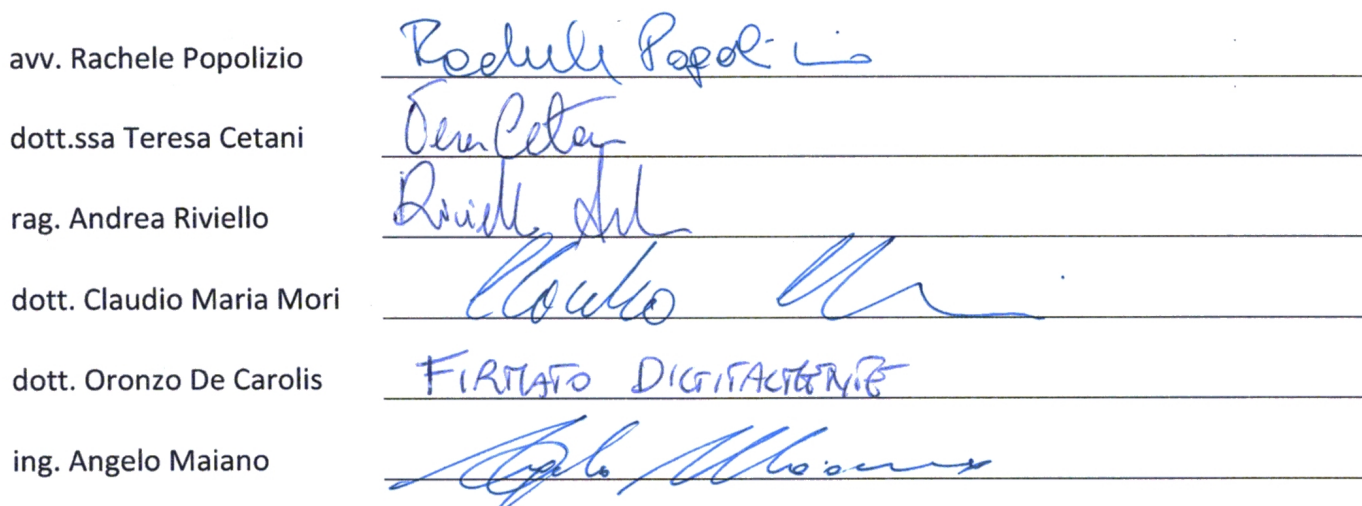 avv. Rachele Popolizio Rachele Popolizio
dott.ssa Teresa Cetani
rag. Andrea Riviello Riviello
dott. Claudio Maria Mori Claudio
dott. Oronzo De Carolis FIRMATO DIGITALMENTE
ing. Angelo Maiano Angelo Maiano